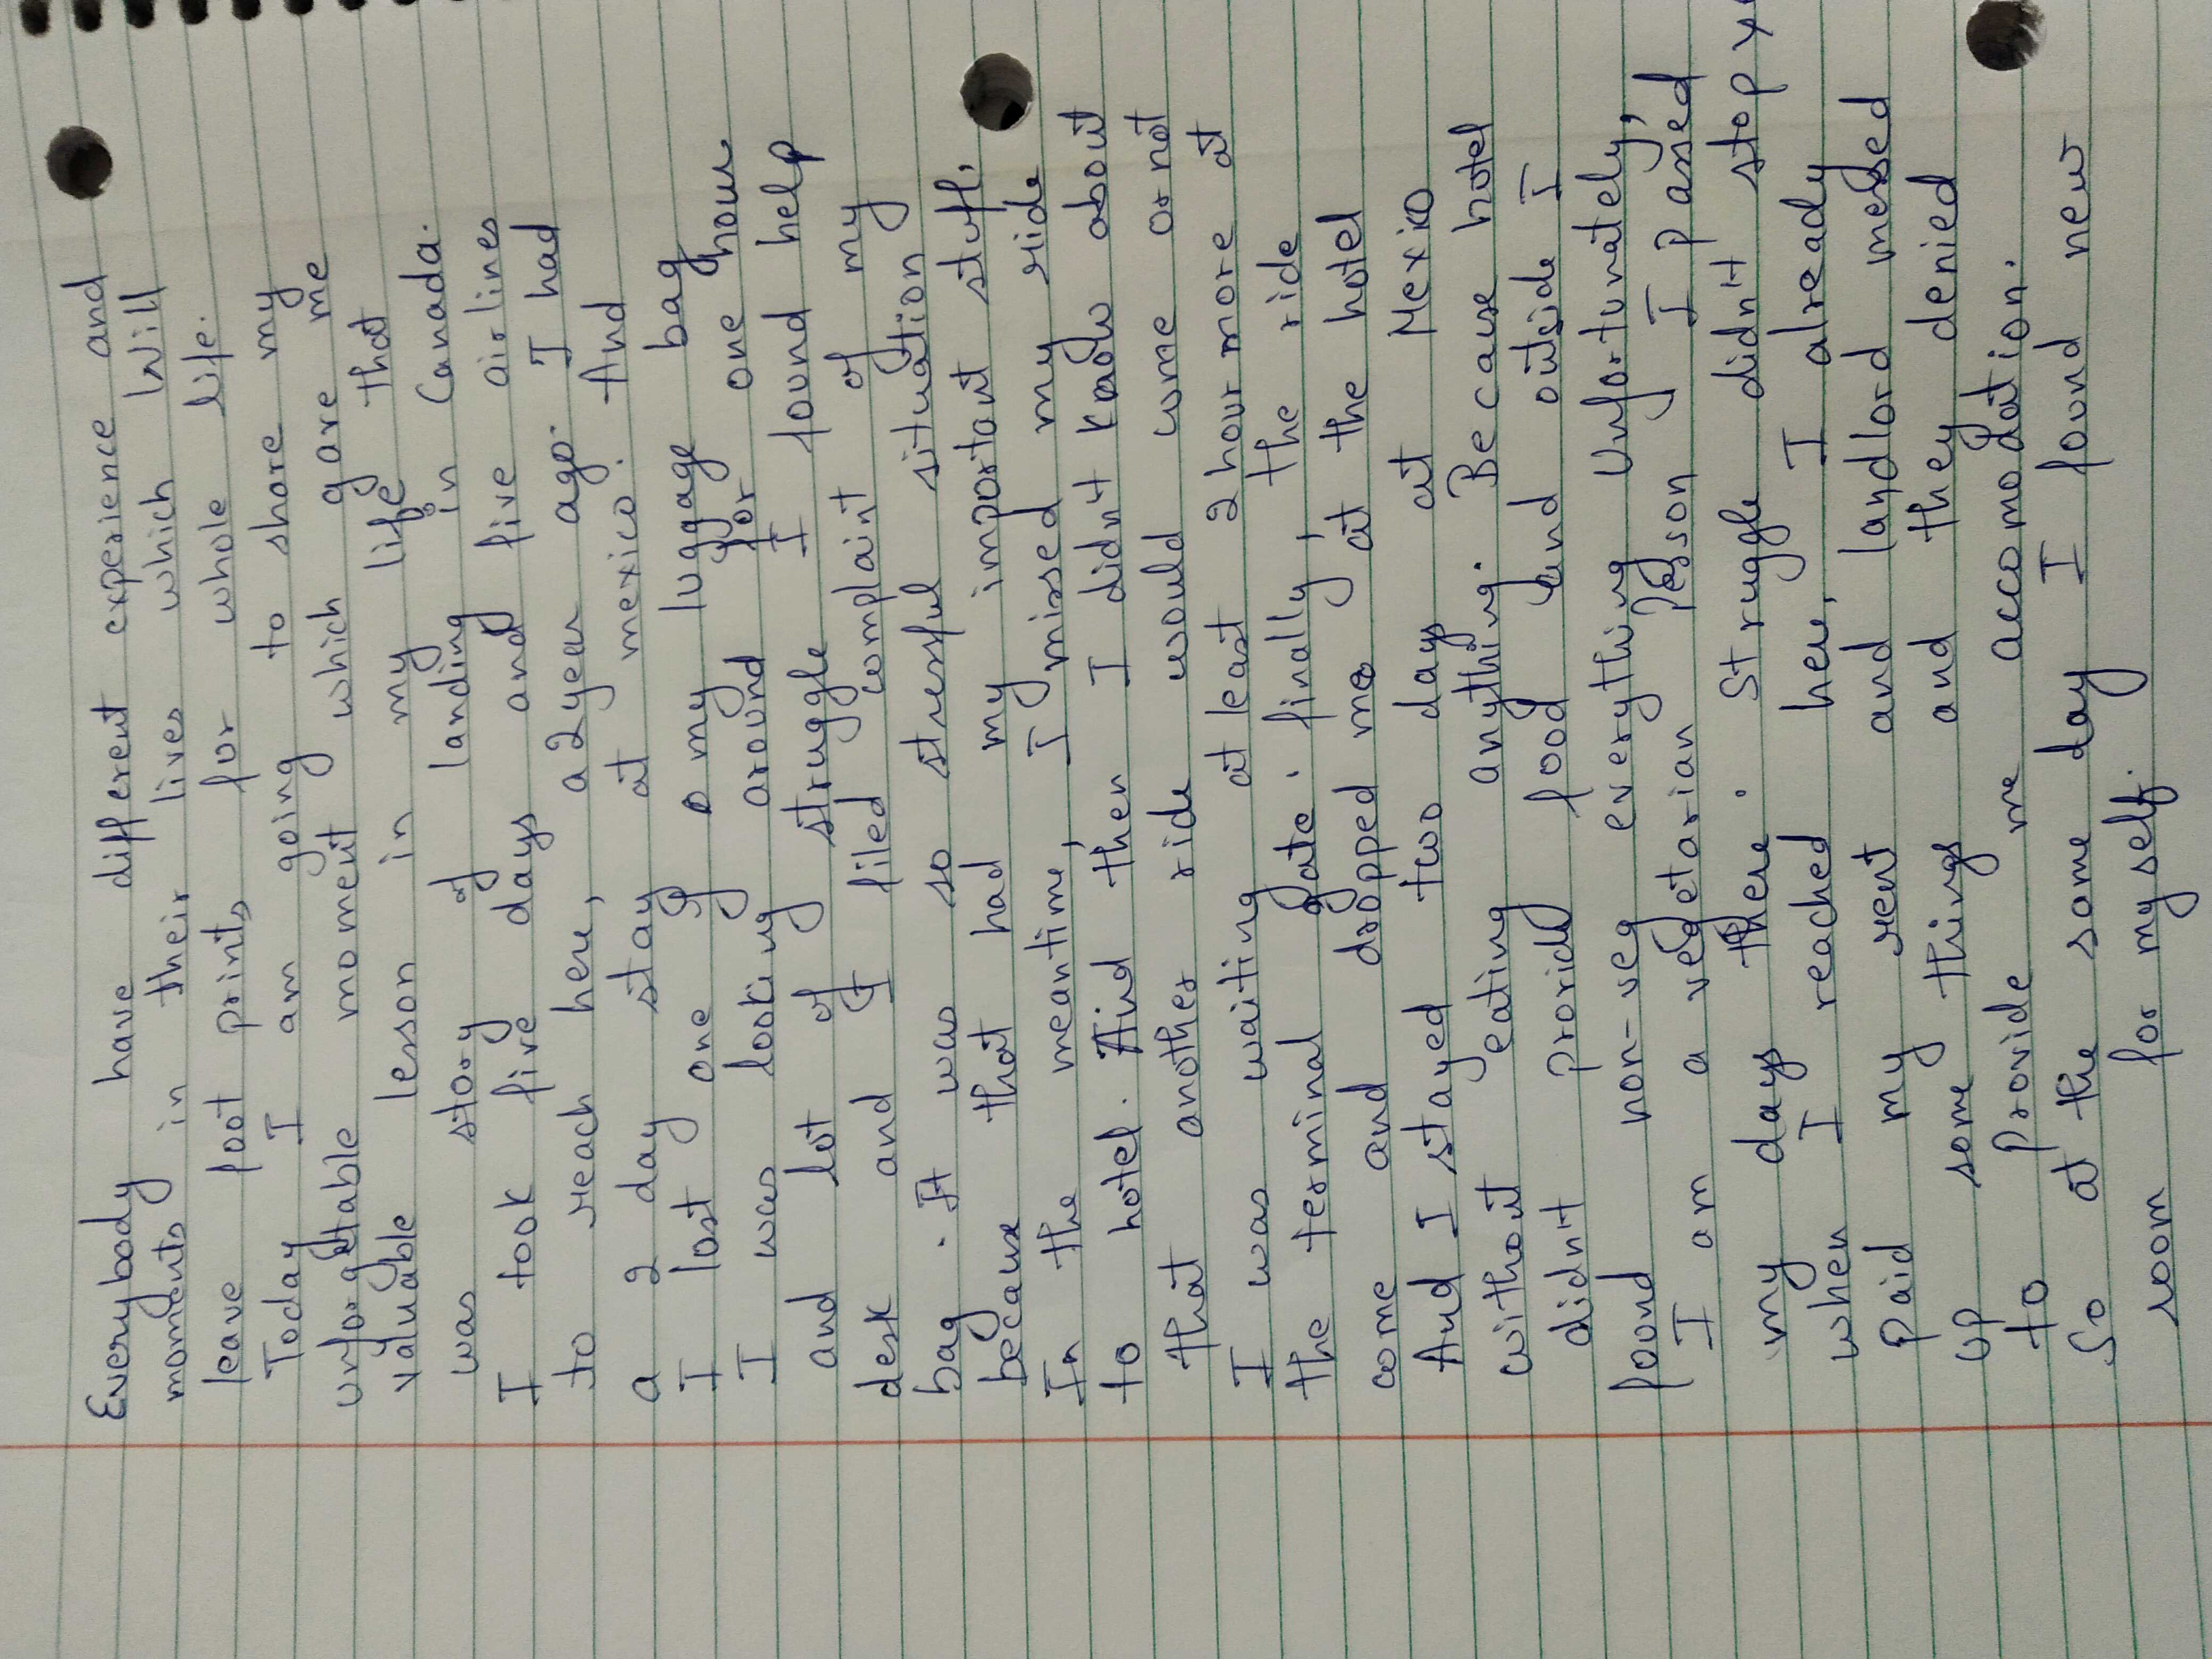 Everybody have different experience and
moments in their lives which will
leave foot prints for whole life.
Today I am going to share my
unforgettable moment which gave me
valuable lesson in my life that
was story of landing in Canada.
I took five days and five airlines
to reach here, a 2 year ago. I had
a 2 day stay at mexico. And
I lost one of my luggage bag
I was looking around for one hour
and lot of struggle I found help
desk and I filed complaint of my
bag. It was so stressful situation
because that had my important stuff,
In the meantime, I missed my ride
to hotel. And then I didn't know about
that another ride would come or not
I was waiting at least 2 hour more at
the terminal gate. finally, the ride
come and dropped me at the hotel
And I stayed two days at Mexico
without eating anything. Because hotel
didn't provide food and outside I
found non-veg everything Unfortunately,
I am a vegetarian person I passed
my days there. Struggle didn't stop
when I reached here, I already
paid my rent and landlord messed
up some things and they denied
to provide me accomodation.
So at the some day I found new
room for my self.